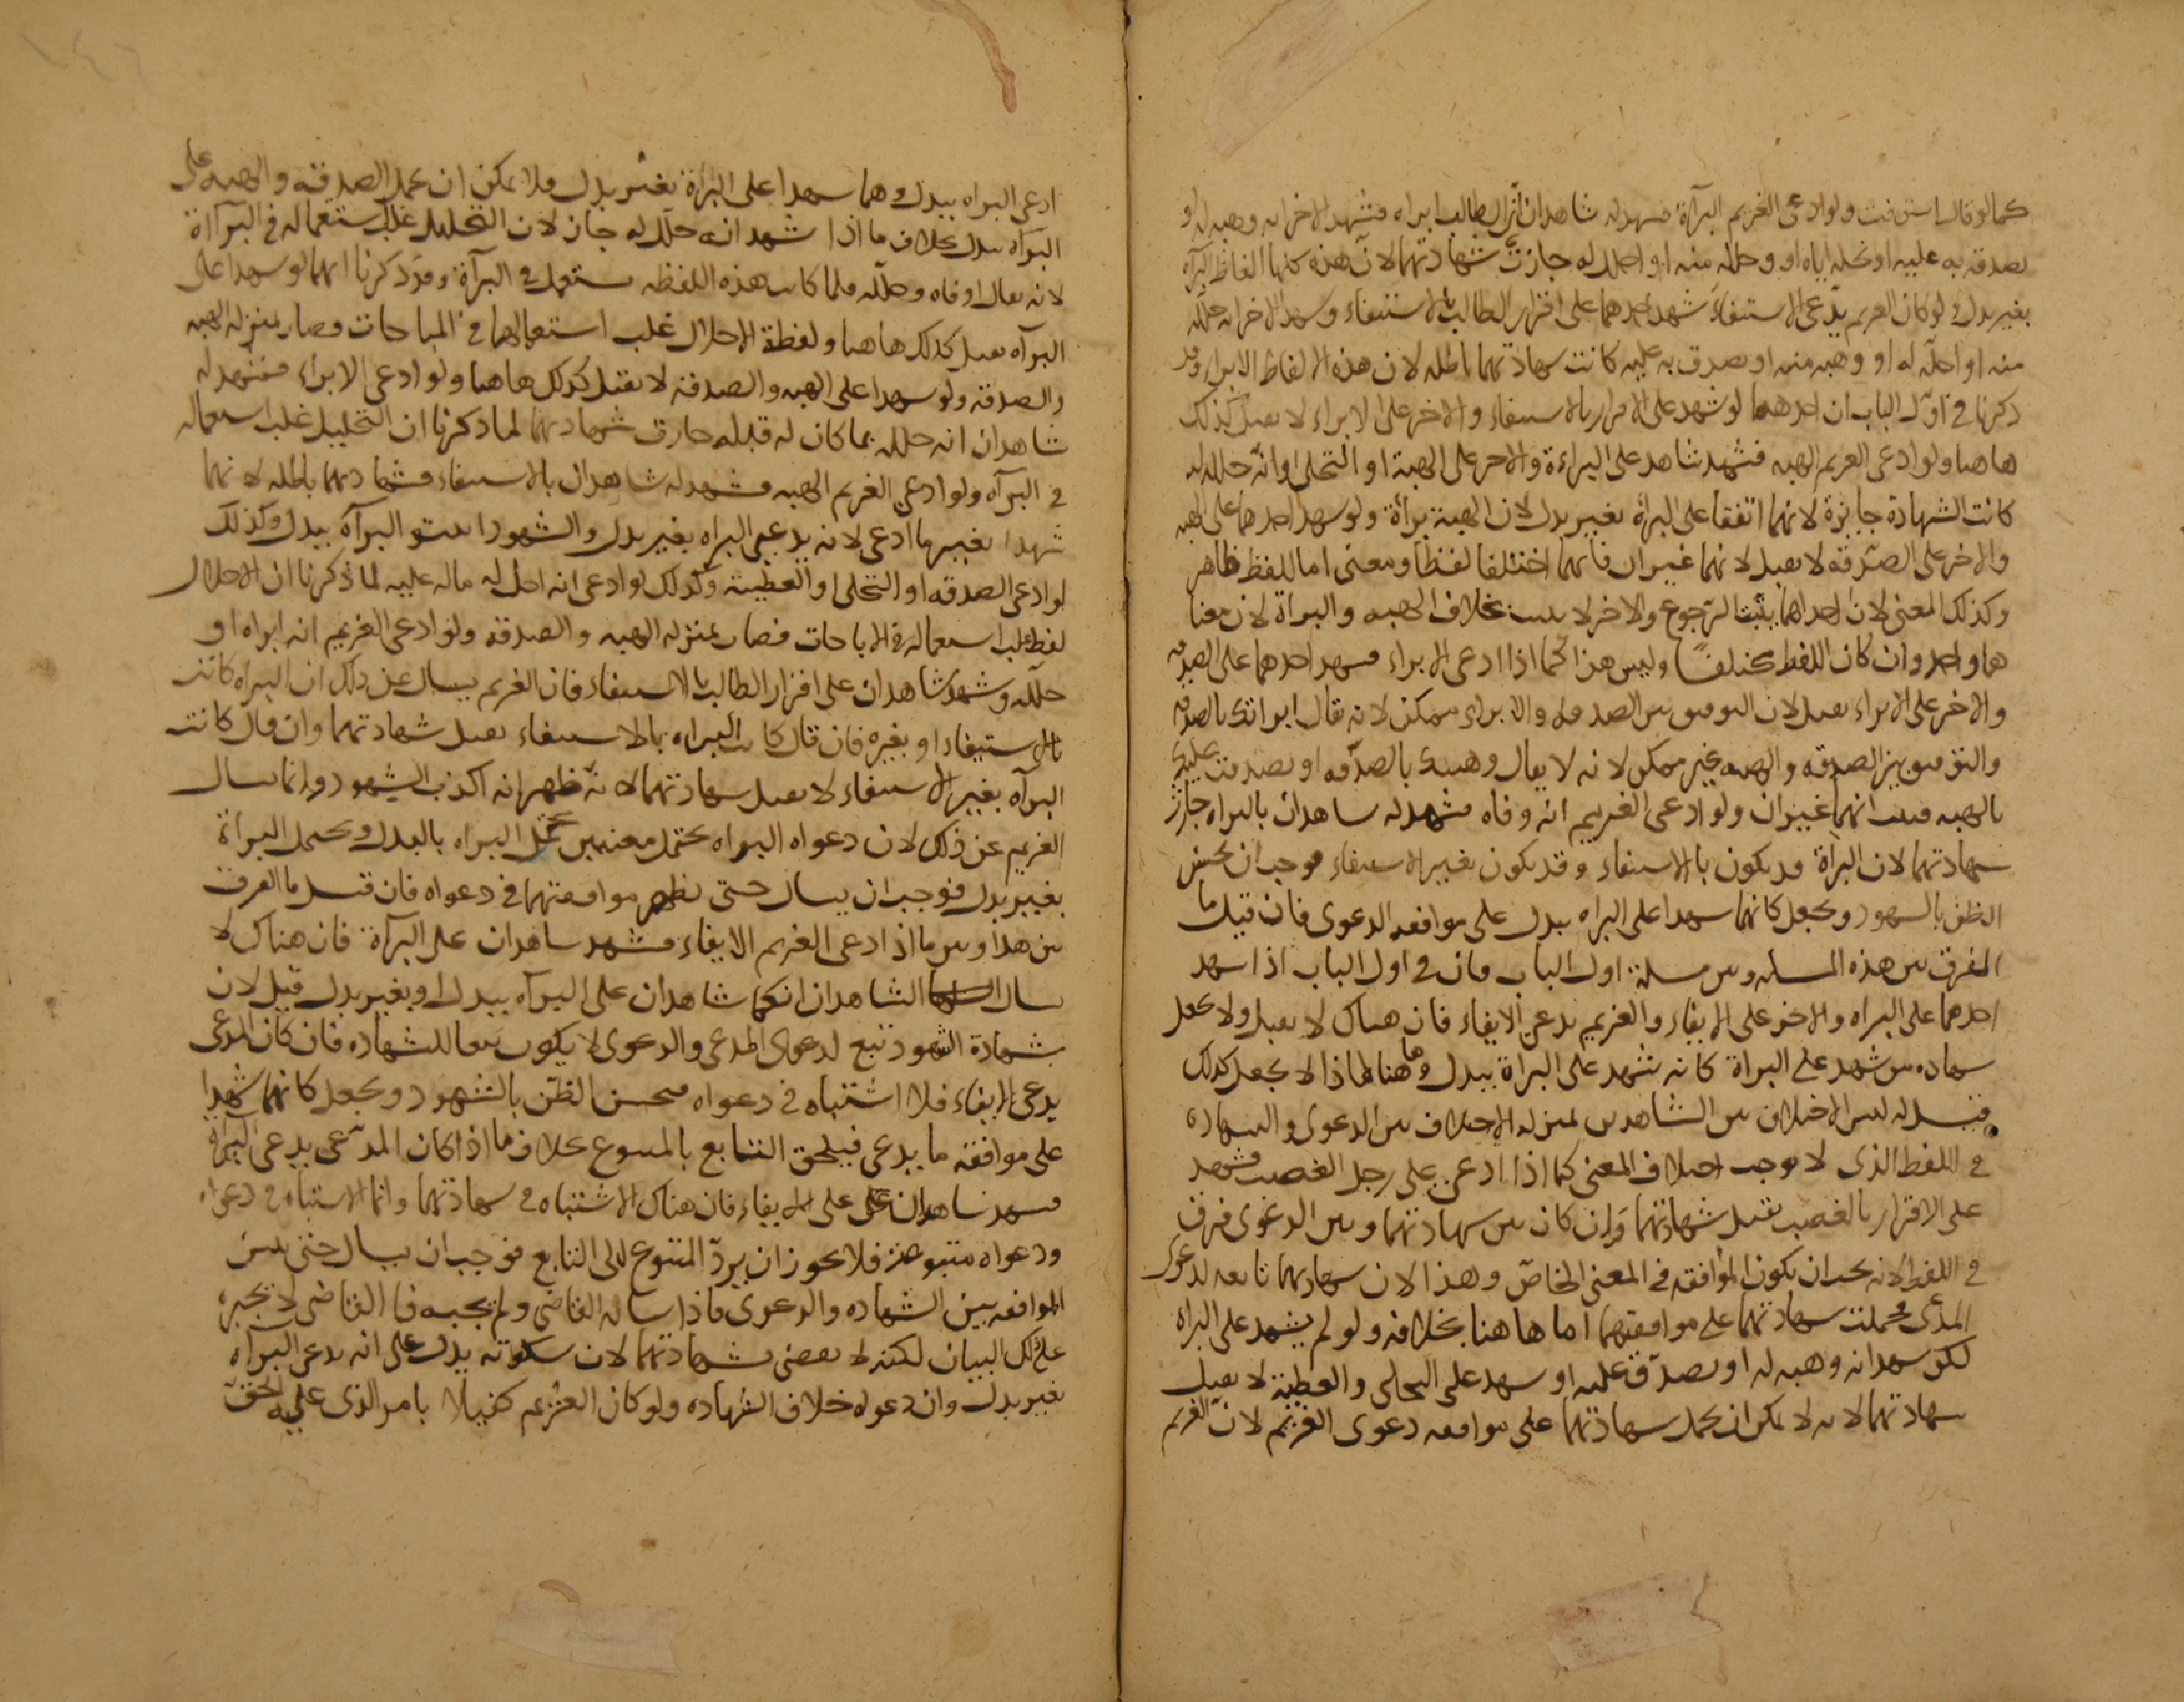 كما لو قال استوفيت ولو ادعى الغريم البرآة فشهد له شاهد ان الطالب ابراه وشهد الاخر انه وهبه له او
تصدق به عليه او نحله اياه او وحلله منه او احلله له جازت شهادتهما لان هذه كلها الفاظ البرآه
بغير بدل ولو كان الغريم يدعي الاستيفاء شهد احدهما على اقرار الطالب بالاستيفاء وشهد الاخر انه حلله
منه او احله له او وهبه منه او تصدق به عليه كانت شهادتهما باطله لان هذه الالفاظ الابراء وقد
ذكرنا في اول الباب ان احدهما لو شهد على الاقرار بالاستيفاء والاخر على الابراء لا تقبل كذلك
هاهنا ولو ادعى الغريم الهبه فشهد شاهد على البراءة والاخر على الهبة او النحلى او انه حلله له
كانت الشهادة جايزة لانهما اتفقا على البرأة بغير بدل لان الهبة برأة ولو شهد احدهما على الهبه
والاخر على الصدقه لا تقبل لانهما غيران فانهما اختلفا لفظا ومعنى اما اللفظ فظاهر
وكذلك المعنى لان احداهما يثبت الرجوع والاخر لا يثبت بخلاف الهبه والبراة لان معنا
هما واحد وان كان اللفظ مختلفا وليس هذا كما اذا ادعى الابراء فشهد احدهما على الصدقه
والاخر على الابراء تقبل لان التوفيق بين الصدقه والابراء ممكن لانه يقال ابراتك بالصدقه
والتوفيق بين الصدقه والهبه غير ممكن لانه لا يقال وهبتك بالصدقه او تصدقت عليك
بالهبه فثبت انهما غيران ولو ادعى الغريم انه وفاه فشهد له شاهدان بالبراه جازت
شهادتهما لان البرآة قد يكون بالاستيفاء وقد يكون بغير الاستيفاء فوجب ان يحسن
الظن بالشهود ويجعل كانهما شهدا على البراه ببدل على موافقه الدعوى فان قيل ما
الفرق بين هذه المسله وبين مسلة اول الباب فان في اول الباب اذا شهد
احدهما على البراه والاخر على الايفاء والغريم يدعي الايفاء فان هناك لا تقبل ولا يجعل
شهاده من شهد على البراة كانه شهد على البراة ببدل وها هنا لماذا لا يجعل كذلك
قيل له ليس الاختلاف بين الشاهدين بمنزله الاختلاف بين الدعوى والشهاده
في اللفظ الذي لا يوجب اختلاف المعنى كما اذا ادعى على رجل الغصب فشهد
على الاقرار بالغصب تقبل شهادتهما وان كان بين شهادتهما وبين الدعوى فرق
في اللفظ لانه يجب ان يكون الموافقه في المعنى الخاص وهذا لان شهادتهما تابعه لدعوى
المدعى فحملت شهادتهما على موافقتهما اما هاهنا بخلافه ولو لم يشهد على البراه
لكن شهد انه وهبه له او تصدق عليه او شهد على النحلى والعطية لا تقبل
شهادتهما لانه لا يمكن ان يحمل شهادتهما على موافقه دعوى الغريم لان الغريم
ادعى البراه ببدل وهما شهدا على البرأة بغير بدل ولا يمكن ان يحمل الصدقه والهبه على
البرآه ببدل بخلاف ما اذا شهد انه حلله له جاز لان التحليل غلب استعماله في البرآة
لانه يقال اوفاه وحلله فلما كانت هذه اللفظه يستعمل في البرآة وقد ذكرنا انهما لو شهدا على
البرآه تقبل كذلك هاهنا ولفظة الاحلال غلب استعمالها في المباحات وصار بمنزله الهبه
والصدقه ولو شهدا على الهبه والصدقه لا تقبل كذلك هاهنا ولو ادعى الابراء فشهد له
شاهدان انه حلله بما كان له قبله جازت شهادتهما لما ذكرنا ان التحليل غلب استعماله
في البرآه ولو ادعى الغريم الهبه فشهد له شاهدان بالاستيفاء فشهادتهما باطله لانهما
شهدا بغير ما ادعى لانه يدعي البراه بغير بدل والشهود اثبتو البرآه ببدل وكذلك
لو ادعى الصدقه او النحلى او العطية وكذلك لو ادعى انه احل له ماله عليه لما ذكرنا ان الاحلال
لفظ غلب استعماله في الاباحات فصار بمنزله الهبه والصدقه ولو ادعى الغريم انه ابراه او
حلله وشهد شاهدان على اقرار الطالب بالاستيفاء فان الغريم يسال عن ذلك ان البراه كانت
بالاستيفاء او بغيره فان قال كانت البراه بالاستيفاء تقبل شهادتهما وان قال كانت
البرآه بغير الاستيفاء لا تقبل شهادتهما لانه ظهر انه اكذب الشهود وانما يسال
الغريم عن ذلك لان دعواه البراه يحتمل معنيين يحتمل البراه بالبدل ويحتمل البراة
بغير بدل فوجب ان يسال حتى تظهر موافقتهما في دعواه فان قيل ما الفرق
بين هذا وبين ما اذا ادعى الغريم الايفاء فشهد شاهدان على البرآة فان هناك لا
يسال الشاهدان انكما شاهدان على البرآه ببدل او بغير بدل قيل لان
شهادة الشهود تتبع لدعوى المدعي والدعوى لا يكون تبعا للشهاده فان كان المدعى
يدعى الايفاء فلا اشتباه في دعواه فيحسن الظن بالشهود ويجعل كانهما شهدا
على موافقه ما يدعى فيلحق التابع بالمتبوع بخلاف ما اذا كان المدعى يدعى البرآه
فشهد شاهدان على الايفاء فان هناك الاشتباه في شهادتهما وانما الاشتباه في دعواه
ودعواه متبوعه فلا يجوز ان يرد المتبوع الى التابع فوجب ان يسال حتى يتبين
الموافقه بين الشهاده والدعوى فاذا ساله القاضي ولم يجبه فالقاضي لا يجبره
على ذلك البيان لكنه لا يقضي بشهادتهما لان سكوته يدل على انه يدعى البرآه
بغير بدل وان دعواه خلاف الشهاده ولو كان الغريم كفيلا بامر الذي عليه الحق